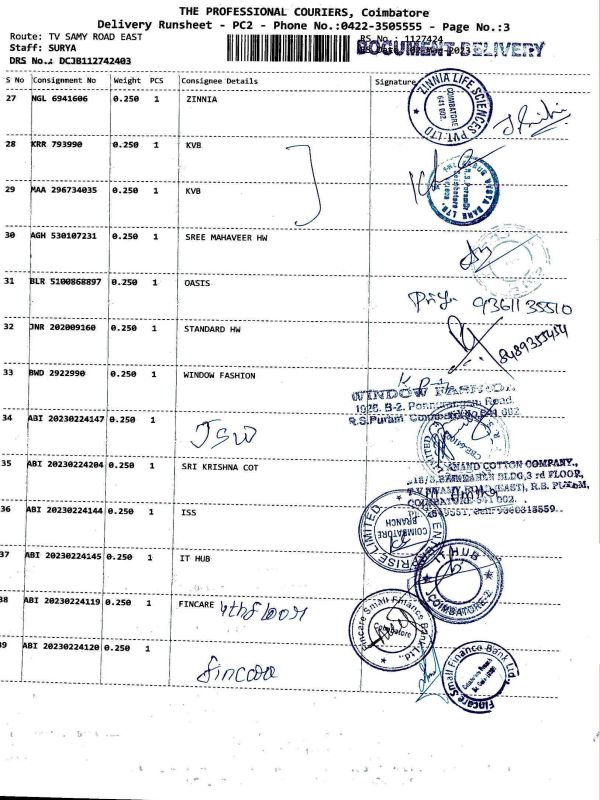 THE PROFESSIONAL COURIERS, Coimbatore
Delivery Runsheet - PC2 - Phone No.:0422-3505555 - Page No.:3
Route: TV SAMY ROAD EAST
RS No.: 1127424
Staff: SURYA
DOCUMENT DELIVERY
DRS No.: DCJB112742403
S No Consignment No Weight PCS Consignee Details Signature
27 NGL 6941606 0.250 1 ZINNIA
ZINNIA LIFE SCIENCES PVT. LTD
COIMBATORE
641 002.
28 KRR 793990 0.250 1 KVB
29 MAA 296734035 0.250 1 KVB
30 AGH 530107231 0.250 1 SREE MAHAVEER HW
31 BLR 5100868897 0.250 1 OASIS
Priya 93611 35510
32 JNR 202009160 0.250 1 STANDARD HW
8489355454
33 BWD 2922990 0.250 1 WINDOW FASHION
WINDOW FASHION
R.S.Puram
34 ABI 20230224147 0.250 1
JSW
35 ABI 20230224204 0.250 1 SRI KRISHNA COT
ANAND COTTON COMPANY.,
BLDG,3 rd FLOOR,
(EAST), R.S. PURAM,
36 ABI 20230224144 0.250 1 ISS
COIMBATORE
BRANCH
37 ABI 20230224145 0.250 1 IT HUB
IT HUB
COIMBATORE-2
38 ABI 20230224119 0.250 1 FINCARE 4th floor
Fincare Small Finance Bank Ltd.,
39 ABI 20230224120 0.250 1
fincare
Fincare Small Finance Bank Ltd